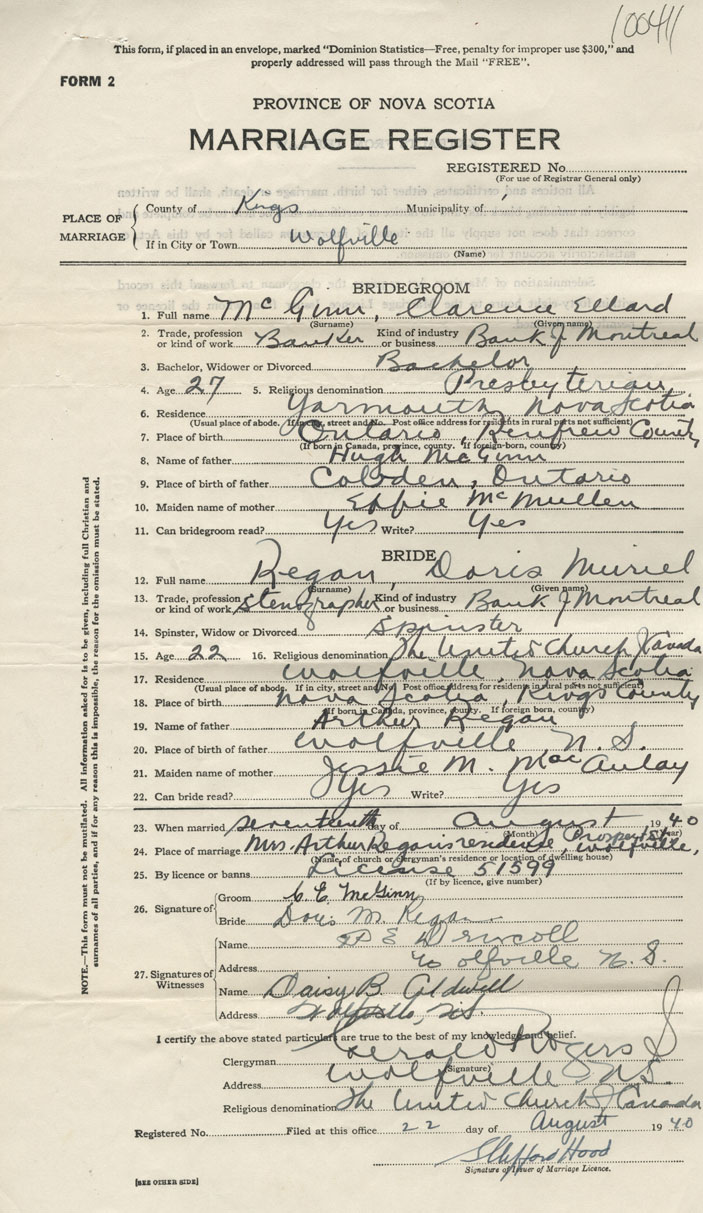 10041
This form, if placed in an envelope, marked "Dominion Statistics—Free, penalty for improper use $300," and
properly addressed will pass through the Mail "FREE".
FORM 2
PROVINCE OF NOVA SCOTIA
MARRIAGE REGISTER
REGISTERED No.
(For use of Registrar General only)
PLACE OF MARRIAGE
County of Kings Municipality of
If in City or Town Wolfville
(Name)
BRIDEGROOM
1. Full name McGinn, Clarence Ellard
(Surname) (Given name)
2. Trade, profession or kind of work Banker Kind of industry or business Bank of Montreal
3. Bachelor, Widower or Divorced Bachelor
4. Age 27 5. Religious denomination Presbyterian
6. Residence Yarmouth, Nova Scotia
(Usual place of abode. If in city, street and No. Post office address for residents in rural parts not sufficient)
7. Place of birth Ontario, Renfrew County
(If born in Canada, province, county. If foreign-born, country)
8. Name of father Hugh McGinn
9. Place of birth of father Cobden, Ontario
10. Maiden name of mother Effie McMullen
11. Can bridegroom read? Yes Write? Yes
BRIDE
12. Full name Regan, Doris Muriel
(Surname) (Given name)
13. Trade, profession or kind of work Stenographer Kind of industry or business Bank of Montreal
14. Spinster, Widow or Divorced Spinster
15. Age 22 16. Religious denomination The United Church of Canada
17. Residence Wolfville, Nova Scotia
(Usual place of abode. If in city, street and No. Post office address for residents in rural parts not sufficient)
18. Place of birth Nova Scotia, Kings County
(If born in Canada, province, county. If foreign born, country)
19. Name of father Arthur Regan
20. Place of birth of father Wolfville N. S.
21. Maiden name of mother Jessie M. MacAulay
22. Can bride read? Yes Write? Yes
23. When married seventeenth day of August 1940
(Month) (Year)
24. Place of marriage Mrs. Arthur Regan's residence, Prospect St. Wolfville,
(Name of church or clergyman's residence or location of dwelling house)
25. By licence or banns License 51599
(If by licence, give number)
26. Signature of
Groom C. E. McGinn
Bride Doris M. Regan
27. Signatures of Witnesses
Name E Driscoll
Address Wolfville N. S.
Name Daisy B. Coldwell
Address Wolfville, N.S.
I certify the above stated particulars are true to the best of my knowledge and belief.
Clergyman Gerald Rogers
(Signature)
Address Wolfville N.S.
Religious denomination The United Church of Canada
Registered No. Filed at this office 22 day of August 1940
Clifford Hood
Signature of Issuer of Marriage Licence.
[SEE OTHER SIDE]
NOTE.—This form must not be mutilated. All information asked for is to be given, including full Christian and
surnames of all parties, and if for any reason this is impossible, the reason for the omission must be stated.